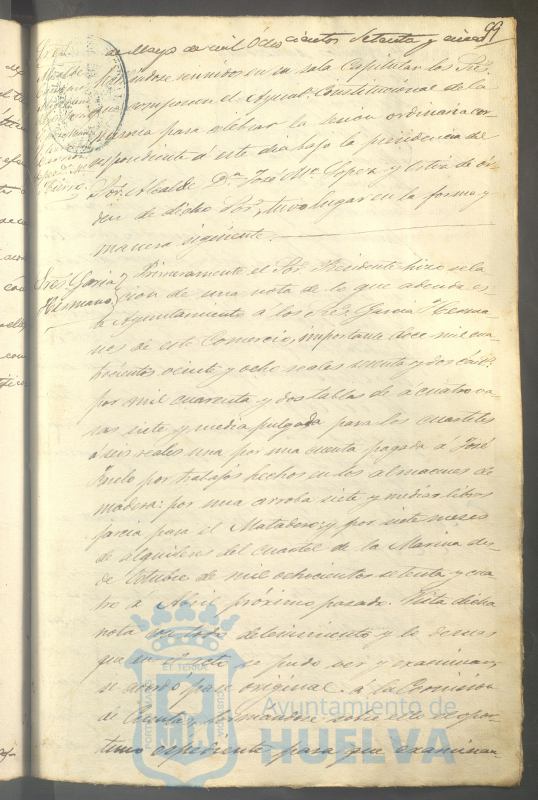 99
de Mayo de mil Ochocientos Setenta y cinco
hallandose reunidos en su sala Capitular los Sres.
que componen el Ayunto. Constitucional de la
misma para celebrar la sesion ordinaria cor
respondiente á este dia bajo la presidencia del
Sor. Alcalde Dn. José Ma. Lopez y de ór
den de dicho Sor. tuvo lugar en la forma y
manera siguiente.
Sres. Garcia
Hermanos
Primeramente el Sor. Presidente hizo rela
cion de una nota de lo que adeuda es
te Ayuntamiento a los Sres. Garcia Herma
nos de este Comercio, importante doce mil cua
trocientos veinte y ocho reales
por mil cuarenta y dos tablas de á cuatro va
ras siete y media pulgada para los cuarteles
á seis reales una por una cuenta pagada á José
por trabajos hechos en los almacenes de
madera: por una arroba siete y media libras
jarcia para el Matadero; y por siete meses
de alquileres del cuartel de la Marina des
de Octubre de mil ochocientos setenta y cua
tro á Abril próximo pasado. Vista dicha
nota con todo detenimiento y lo demas
que en el acto se pudo ver y examinar,
se acordó pase original á la Comision
de Cuentas formandose sobre ello el opor
tuno espediente para que examinan
PORTUS MARIS ET TERRAE CUSTODIA
Ayuntamiento de
HUELVA